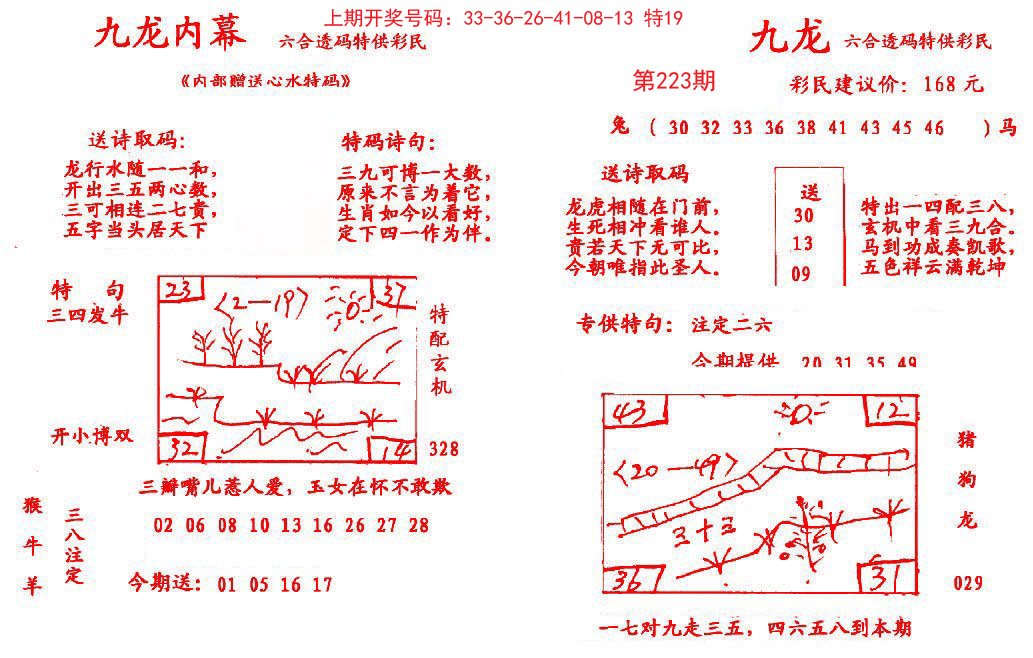 上期开奖号码：33-36-26-41-08-13 特19
九龙内幕 六合透码特供彩民
《内部赠送心水特码》
送诗取码：
龙行水随一一和，
开出三五两心数，
三可相连二七贵，
五字当头居天下
特码诗句：
三九可博一大数，
原来不言为着它，
生肖如今以看好，
定下四一作为伴。
特 句
三四发牛
开小博双
23
37
〈2—19〉
32
14
特配玄机
328
三瓣嘴儿惹人爱，玉女在怀不敢欺
猴牛羊
三八注定
02 06 08 10 13 16 26 27 28
今期送：01 05 16 17
九龙 六合透码特供彩民
第223期
彩民建议价：168 元
兔 （ 30 32 33 36 38 41 43 45 46 ）马
送诗取码
龙虎相随在门前，
生死相冲看谁人。
贵若天下无可比，
今朝唯指此圣人。
送
30
13
09
特出一四配三八，
玄机中看三九合。
马到功成奏凯歌，
五色祥云满乾坤
专供特句：注定二六
今期提供 20 31 35 49
43
12
〈20—49〉
三十三
36
31
猪狗龙
029
一七对九走三五，四六五八到本期